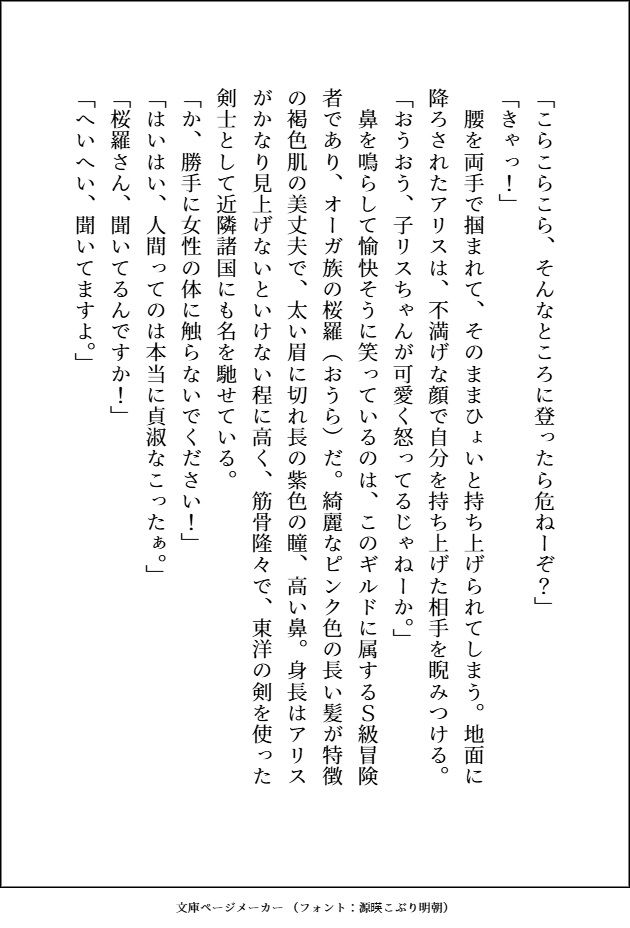 「こらこらこら、そんなところに登ったら危ねーぞ？」
「きゃっ！」
　腰を両手で掴まれて、そのままひょいと持ち上げられてしまう。地面に
降ろされたアリスは、不満げな顔で自分を持ち上げた相手を睨みつける。
「おうおう、子リスちゃんが可愛く怒ってるじゃねーか。」
　鼻を鳴らして愉快そうに笑っているのは、このギルドに属するＳ級冒険
者であり、オーガ族の桜羅（おうら）だ。綺麗なピンク色の長い髪が特徴
の褐色肌の美丈夫で、太い眉に切れ長の紫色の瞳、高い鼻。身長はアリス
がかなり見上げないといけない程に高く、筋骨隆々で、東洋の剣を使った
剣士として近隣諸国にも名を馳せている。
「か、勝手に女性の体に触らないでください！」
「はいはい、人間ってのは本当に貞淑なこったぁ。」
「桜羅さん、聞いてるんですか！」
「へいへい、聞いてますよ。」
文庫ページメーカー（フォント：源暎こぶり明朝）